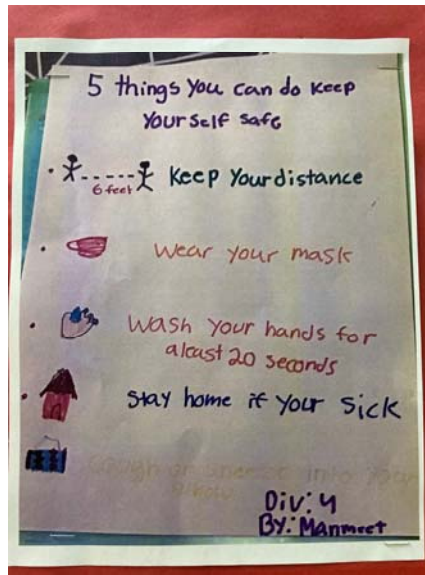 5 things you can do keep
yourself safe
6 feet
Keep your distance
Wear your mask
Wash your hands for
aleast 20 seconds
stay home if your sick
Cough or sneeze into your
Div: 4
By: Manmeet